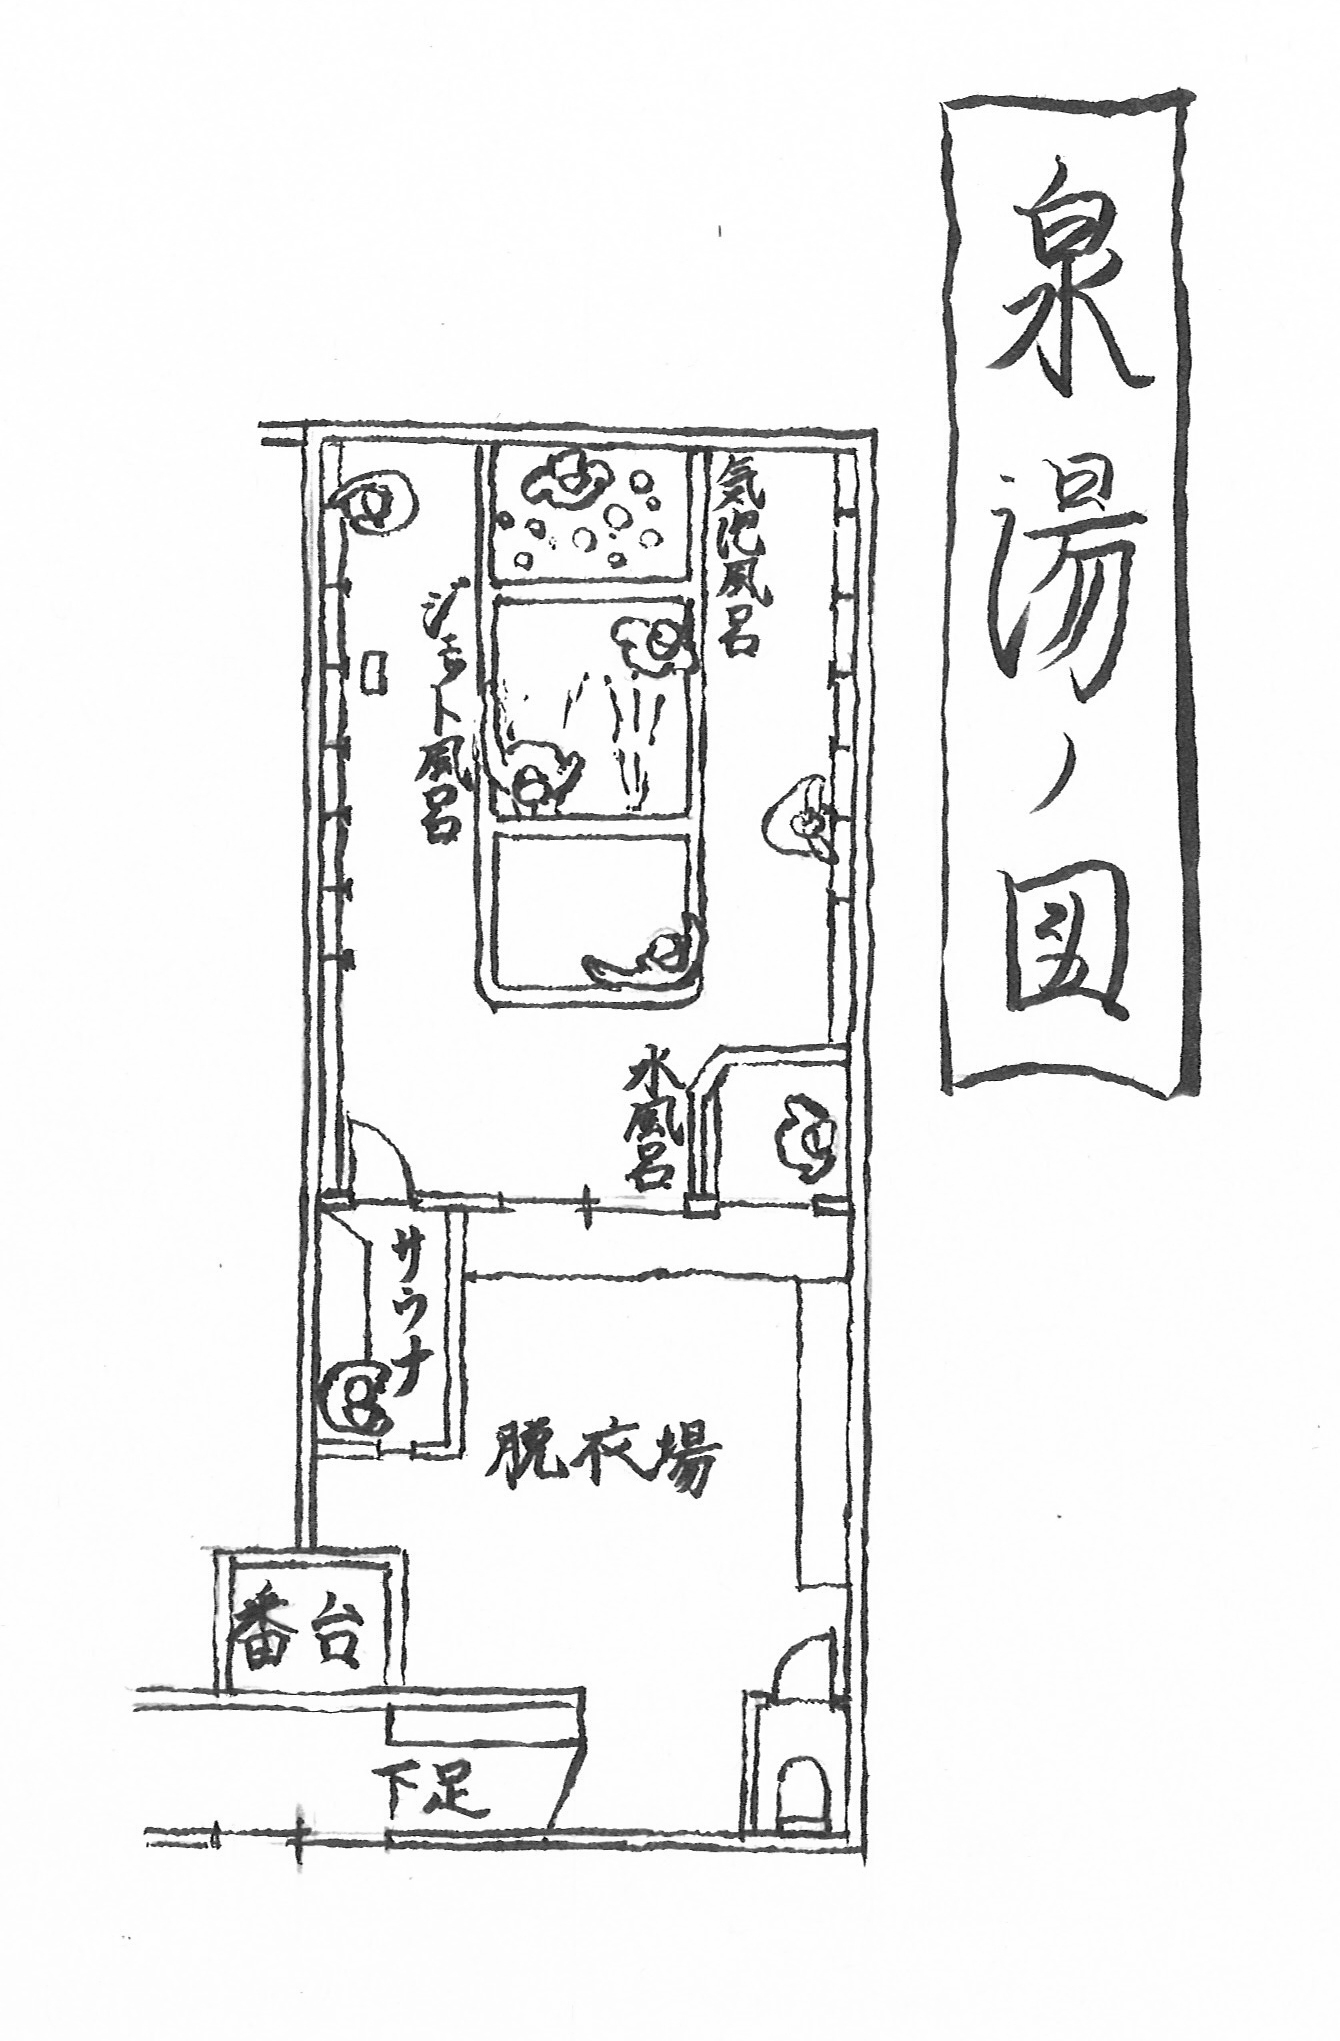 泉湯ノ図
気泡風呂
ジェット風呂
水風呂
サウナ
脱衣場
番台
下足